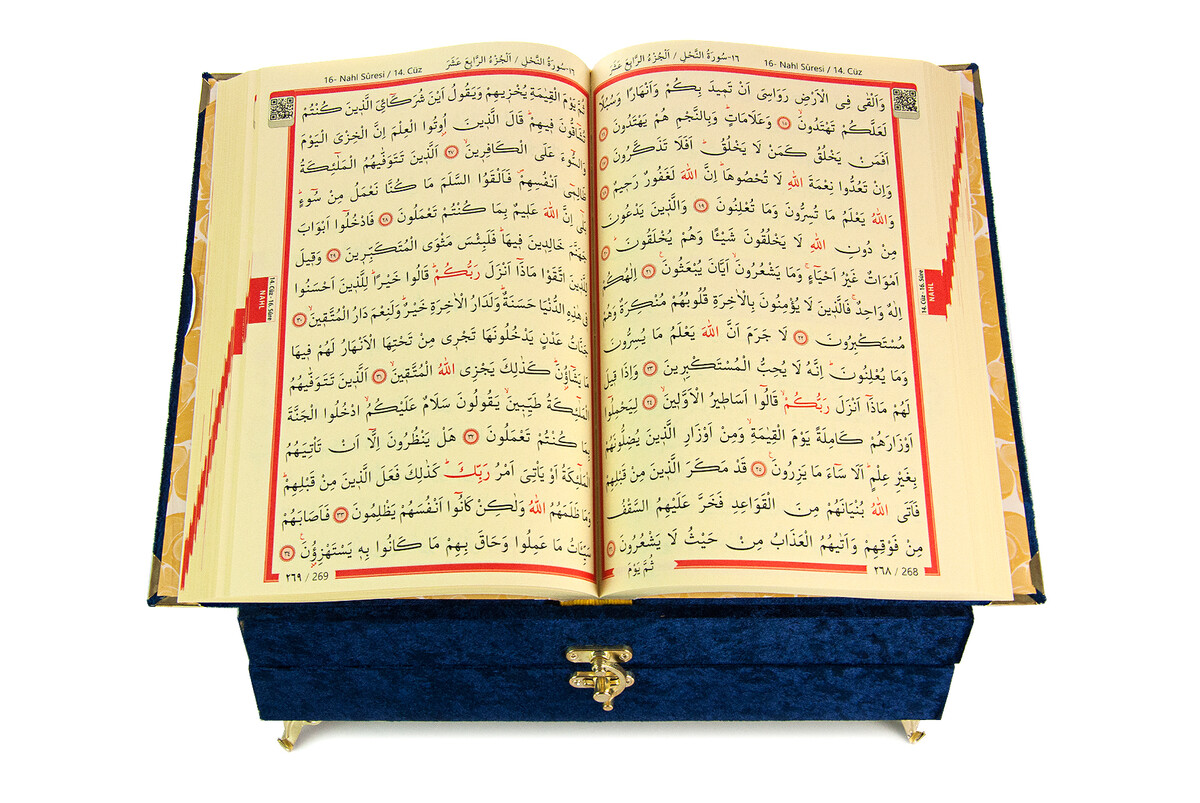 ١٦-سُورَةُ النَّحْلِ / اَلْجُزْءُ الرَّابِعَ عَشَرَ
16- Nahl Sûresi / 14. Cüz
وَاَلْقٰى فِى الْاَرْضِ رَوَاسِىَ اَنْ تَم۪يدَ بِكُمْ وَاَنْهَارًا وَسُبُلًا
لَعَلَّكُمْ تَهْتَدُونَۙ ﴿١٥﴾ وَعَلَامَاتٍۜ وَبِالنَّجْمِ هُمْ يَهْتَدُونَ ﴿١٦﴾
اَفَمَنْ يَخْلُقُ كَمَنْ لَا يَخْلُقُۜ اَفَلَا تَذَكَّرُونَ ﴿١٧﴾
وَاِنْ تَعُدُّوا نِعْمَةَ اللّٰهِ لَا تُحْصُوهَاۜ اِنَّ اللّٰهَ لَغَفُورٌ رَح۪يمٌ ﴿١٨﴾
وَاللّٰهُ يَعْلَمُ مَا تُسِرُّونَ وَمَا تُعْلِنُونَ ﴿١٩﴾ وَالَّذ۪ينَ يَدْعُونَ
مِنْ دُونِ اللّٰهِ لَا يَخْلُقُونَ شَيْـًٔا وَهُمْ يُخْلَقُونَۜ ﴿٢٠﴾
اَمْوَاتٌ غَيْرُ اَحْيَٓاءٍۚ وَمَا يَشْعُرُونَۙ اَيَّانَ يُبْعَثُونَ۟ ﴿٢١﴾ اِلٰهُكُمْ
اِلٰهٌ وَاحِدٌۚ فَالَّذ۪ينَ لَا يُؤْمِنُونَ بِالْاٰخِرَةِ قُلُوبُهُمْ مُنْكِرَةٌ وَهُمْ
مُسْتَكْبِرُونَ ﴿٢٢﴾ لَا جَرَمَ اَنَّ اللّٰهَ يَعْلَمُ مَا يُسِرُّونَ
وَمَا يُعْلِنُونَۜ اِنَّهُ لَا يُحِبُّ الْمُسْتَكْبِر۪ينَ ﴿٢٣﴾ وَاِذَا ق۪يلَ
لَهُمْ مَاذَٓا اَنْزَلَ رَبُّكُمْۙ قَالُٓوا اَسَاط۪يرُ الْاَوَّل۪ينَۙ ﴿٢٤﴾ لِيَحْمِلُٓوا
اَوْزَارَهُمْ كَامِلَةً يَوْمَ الْقِيٰمَةِۙ وَمِنْ اَوْزَارِ الَّذ۪ينَ يُضِلُّونَهُمْ
بِغَيْرِ عِلْمٍۜ اَلَا سَٓاءَ مَا يَزِرُونَ۟ ﴿٢٥﴾ قَدْ مَكَرَ الَّذ۪ينَ مِنْ قَبْلِهِمْ
فَاَتَى اللّٰهُ بُنْيَانَهُمْ مِنَ الْقَوَاعِدِ فَخَرَّ عَلَيْهِمُ السَّقْفُ
مِنْ فَوْقِهِمْ وَاَتٰيهُمُ الْعَذَابُ مِنْ حَيْثُ لَا يَشْعُرُونَ ﴿٢٦﴾
ثُمَّ يَوْمَ
٢٦٨ / 268
14. Cüz - 16. Sûre
NAHL
١٦-سُورَةُ النَّحْلِ / اَلْجُزْءُ الرَّابِعَ عَشَرَ
16- Nahl Sûresi / 14. Cüz
ثُمَّ يَوْمَ الْقِيٰمَةِ يُخْز۪يهِمْ وَيَقُولُ اَيْنَ شُرَكَٓاءِىَ الَّذ۪ينَ كُنْتُمْ
تُشَٓاقُّونَ ف۪يهِمْۜ قَالَ الَّذ۪ينَ اُوتُوا الْعِلْمَ اِنَّ الْخِزْىَ الْيَوْمَ
وَالسُّٓوءَ عَلَى الْكَافِر۪ينَۙ ﴿٢٧﴾ اَلَّذ۪ينَ تَتَوَفّٰيهُمُ الْمَلٰٓئِكَةُ
ظَالِم۪ٓى اَنْفُسِهِمْۖ فَاَلْقَوُا السَّلَمَ مَا كُنَّا نَعْمَلُ مِنْ سُٓوءٍۜ
بَلٰٓى اِنَّ اللّٰهَ عَل۪يمٌ بِمَا كُنْتُمْ تَعْمَلُونَ ﴿٢٨﴾ فَادْخُلُٓوا اَبْوَابَ
جَهَنَّمَ خَالِد۪ينَ ف۪يهَاۜ فَلَبِئْسَ مَثْوَى الْمُتَكَبِّر۪ينَ ﴿٢٩﴾ وَق۪يلَ
لِلَّذ۪ينَ اتَّقَوْا مَاذَٓا اَنْزَلَ رَبُّكُمْۜ قَالُوا خَيْرًاۜ لِلَّذ۪ينَ اَحْسَنُوا
ف۪ى هٰذِهِ الدُّنْيَا حَسَنَةٌۜ وَلَدَارُ الْاٰخِرَةِ خَيْرٌۜ وَلَنِعْمَ دَارُ الْمُتَّق۪ينَۙ ﴿٣٠﴾
جَنَّاتُ عَدْنٍ يَدْخُلُونَهَا تَجْر۪ى مِنْ تَحْتِهَا الْاَنْهَارُ لَهُمْ ف۪يهَا
مَا يَشَٓاؤُ۫نَۜ كَذٰلِكَ يَجْزِى اللّٰهُ الْمُتَّق۪ينَۙ ﴿٣١﴾ اَلَّذ۪ينَ تَتَوَفّٰيهُمُ
الْمَلٰٓئِكَةُ طَيِّب۪ينَۙ يَقُولُونَ سَلَامٌ عَلَيْكُمُۙ ادْخُلُوا الْجَنَّةَ
بِمَا كُنْتُمْ تَعْمَلُونَ ﴿٣٢﴾ هَلْ يَنْظُرُونَ اِلَّٓا اَنْ تَأْتِيَهُمُ
الْمَلٰٓئِكَةُ اَوْ يَأْتِىَ اَمْرُ رَبِّكَۜ كَذٰلِكَ فَعَلَ الَّذ۪ينَ مِنْ قَبْلِهِمْۜ
وَمَا ظَلَمَهُمُ اللّٰهُ وَلٰكِنْ كَانُٓوا اَنْفُسَهُمْ يَظْلِمُونَ ﴿٣٣﴾ فَاَصَابَهُمْ
سَيِّـَٔاتُ مَا عَمِلُوا وَحَاقَ بِهِمْ مَا كَانُوا بِه۪ يَسْتَهْزِؤُ۫نَ۟ ﴿٣٤﴾
٢٦٩ / 269
14. Cüz - 16. Sûre
NAHL